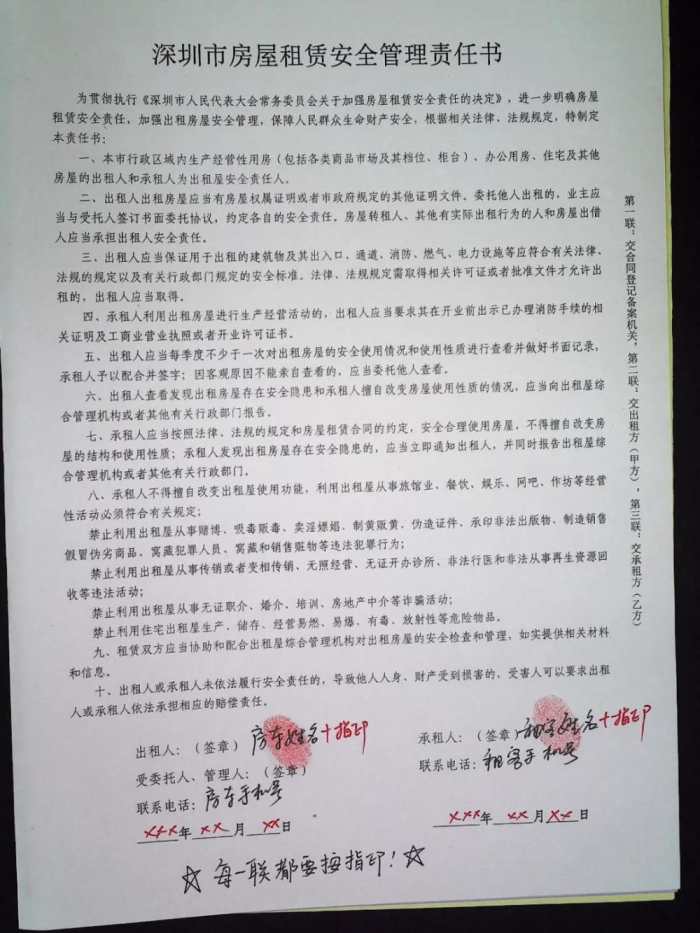 深圳市房屋租赁安全管理责任书
为贯彻执行《深圳市人民代表大会常务委员会关于加强房屋租赁安全责任的决定》，进一步明确房屋
租赁安全责任，加强出租房屋安全管理，保障人民群众生命财产安全，根据相关法律、法规规定，特制定
本责任书：
一、本市行政区域内生产经营性用房（包括各类商品市场及其档位、柜台）、办公用房、住宅及其他
房屋的出租人和承租人为出租屋安全责任人。
二、出租人出租房屋应当有房屋权属证明或者市政府规定的其他证明文件。委托他人出租的，业主应
当与受托人签订书面委托协议，约定各自的安全责任。房屋转租人、其他有实际出租行为的人和房屋出借
人应当承担出租人安全责任。
三、出租人应当保证用于出租的建筑物及其出入口、通道、消防、燃气、电力设施等应符合有关法律、
法规的规定以及有关行政部门规定的安全标准。法律、法规规定需取得相关许可证或者批准文件才允许出
租的，出租人应当取得。
四、承租人利用出租房屋进行生产经营活动的，出租人应当要求其在开业前出示已办理消防手续的相
关证明及工商业营业执照或者开业许可证书。
五、出租人应当每季度不少于一次对出租房屋的安全使用情况和使用性质进行查看并做好书面记录，
承租人予以配合并签字；因客观原因不能亲自查看的，应当委托他人查看。
六、出租人查看发现出租房屋存在安全隐患和承租人擅自改变房屋使用性质的情况，应当向出租屋综
合管理机构或者其他有关行政部门报告。
七、承租人应当按照法律、法规的规定和房屋租赁合同的约定，安全合理使用房屋，不得擅自改变房
屋的结构和使用性质；承租人发现出租房屋存在安全隐患的，应当立即通知出租人，并同时报告出租屋综
合管理机构或者其他有关行政部门。
八、承租人不得擅自改变出租屋使用功能，利用出租屋从事旅馆业、餐饮、娱乐、网吧、作坊等经营
性活动必须符合有关规定；
禁止利用出租屋从事赌博、吸毒贩毒、卖淫嫖娼、制黄贩黄、伪造证件、承印非法出版物、制造销售
假冒伪劣商品、窝藏犯罪人员、窝藏和销售赃物等违法犯罪行为；
禁止利用出租屋从事传销或者变相传销、无照经营、无证开办诊所、非法行医和非法从事再生资源回
收等违法活动；
禁止利用出租屋从事无证职介、婚介、培训、房地产中介等诈骗活动；
禁止利用住宅出租屋生产、储存、经营易燃、易爆、有毒、放射性等危险物品。
九、租赁双方应当协助和配合出租屋综合管理机构对出租房屋的安全检查和管理，如实提供相关材料
和信息。
十、出租人或承租人未依法履行安全责任的，导致他人人身、财产受到损害的，受害人可以要求出租
人或承租人依法承担相应的赔偿责任。
出租人：（签章）房东姓名+指印
受委托人、管理人：（签章）
联系电话：房东手机号
xxx年xx月xx日
承租人：（签章）租客姓名+指印
联系电话：租客手机号
xxx年xx月xx日
☆ 每一联都要按指印！☆
第一联：交合同登记备案机关，第二联：交出租方（甲方），第三联：交承租方（乙方）